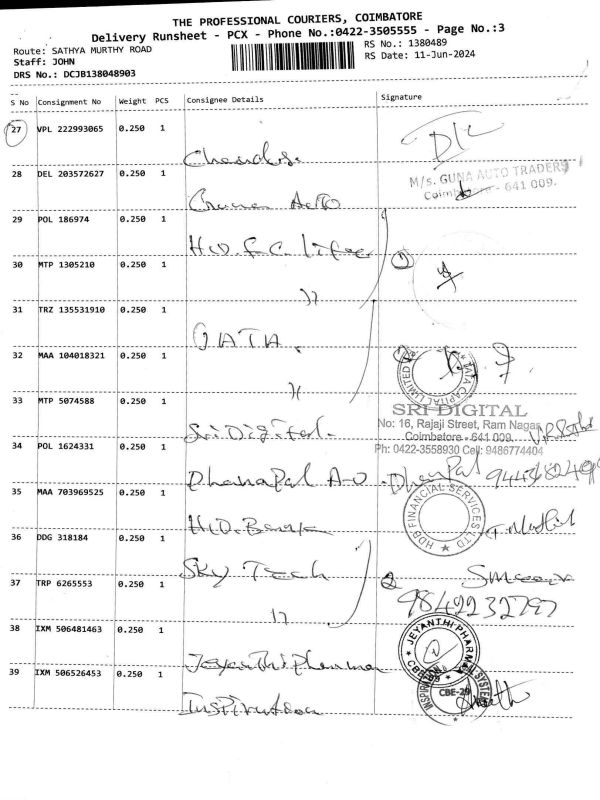 THE PROFESSIONAL COURIERS, COIMBATORE
Delivery Runsheet - PCX - Phone No.:0422-3505555 - Page No.:3
Route: SATHYA MURTHY ROAD
RS No.: 1380489
Staff: JOHN
RS Date: 11-Jun-2024
DRS No.: DCJB138048903
S No Consignment No Weight PCS Consignee Details Signature
27 VPL 222993065 0.250 1
28 DEL 203572627 0.250 1
M/s. GUNA AUTO TRADERS
- 641 009.
Auto
29 POL 186974 0.250 1
30 MTP 1305210 0.250 1
31 TRZ 135531910 0.250 1
TATA
32 MAA 104018321 0.250 1
TATA CAPITAL LIMITED
33 MTP 5074588 0.250 1
SRI DIGITAL
No: 16, Rajaji Street, Ram Nagar
Coimbatore - 641 009
Ph: 0422-3558930 Cell: 9486774404
Sri Digital.
34 POL 1624331 0.250 1
DhanaPal
35 MAA 703969525 0.250 1
HDB FINANCIAL SERVICES LTD
36 DDG 318184 0.250 1
Sky Tech
37 TRP 6265553 0.250 1
9842232797
38 IXM 506481463 0.250 1
JEYANTHI PHARMA
39 IXM 506526453 0.250 1
CBE-29
Inspiration